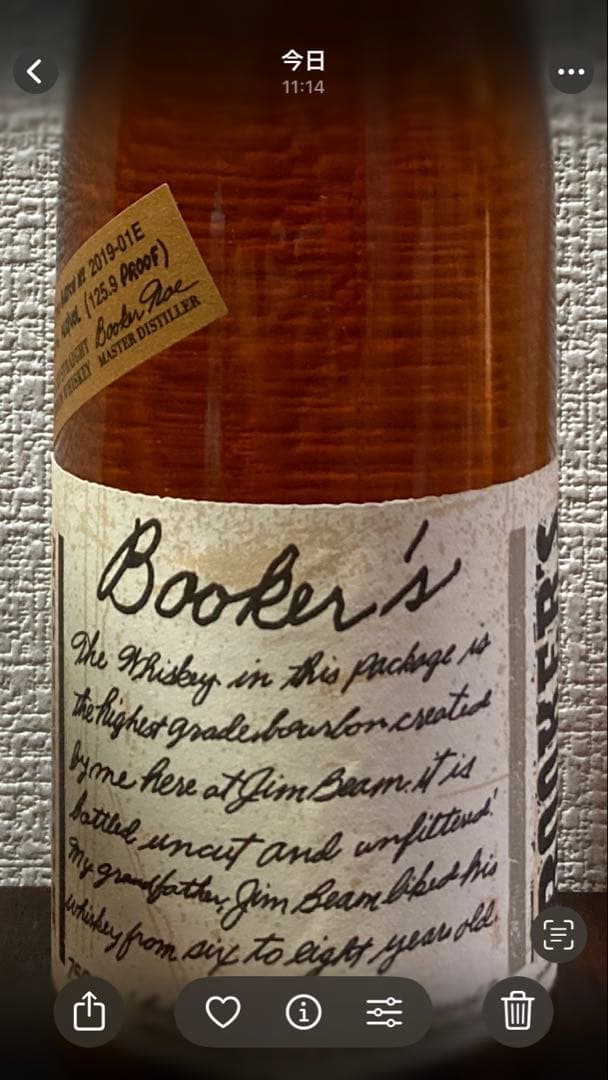 今日
11:14
2019-01E
(125.9 PROOF)
STRAIGHT Booker Noe
WHISKEY MASTER DISTILLER
Booker's
The Whiskey in this package is
the highest grade bourbon created
by me here at Jim Beam. it is
bottled uncut and unfiltered!
My grandfather, Jim Beam liked his
whiskey from six to eight years old.
BOOKER'S